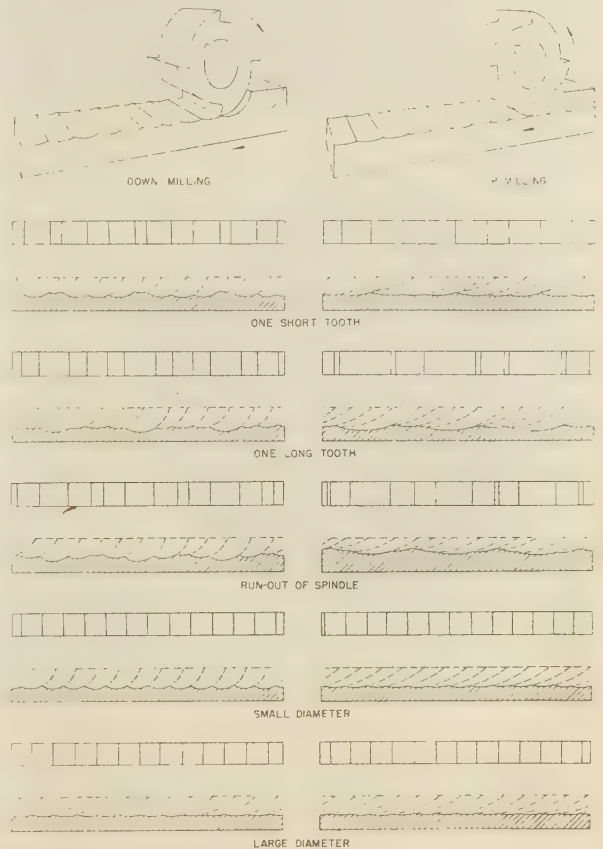 DOWN MILLING
MILLING
ONE SHORT TOOTH
ONE LONG TOOTH
RUN-OUT OF SPINDLE
SMALL DIAMETER
LARGE DIAMETER